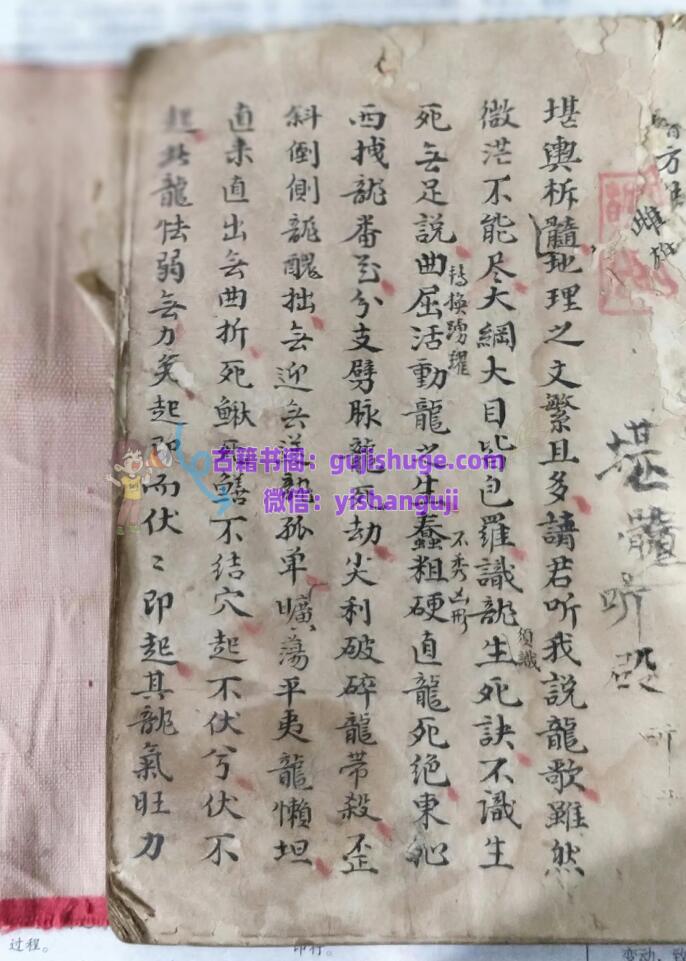 方
雌雄
堪髓听
堪輿柝髓地理之文繁且多請君听我説龍歌雖然
微茫不能尽大綱大目皆包羅識龍生死訣不識生
須識
死無足説曲屈活動龍之生蠢粗硬直龍死絶東
轉換踴躍
不秀凶形
西拽龍番花分支劈脉龍死劫尖利破碎龍帯殺歪
斜倒側龍醜拙無迎無送龍孤单曠蕩平夷龍懶坦
直来直出無曲折死鰍死鱔不结穴起不伏兮伏不
起此龍怯弱無力矣起即而伏〻即起其龍氣旺力
古籍书阁：gujishuge.com
微信：yishanguji
过程。
印行。
变动，致